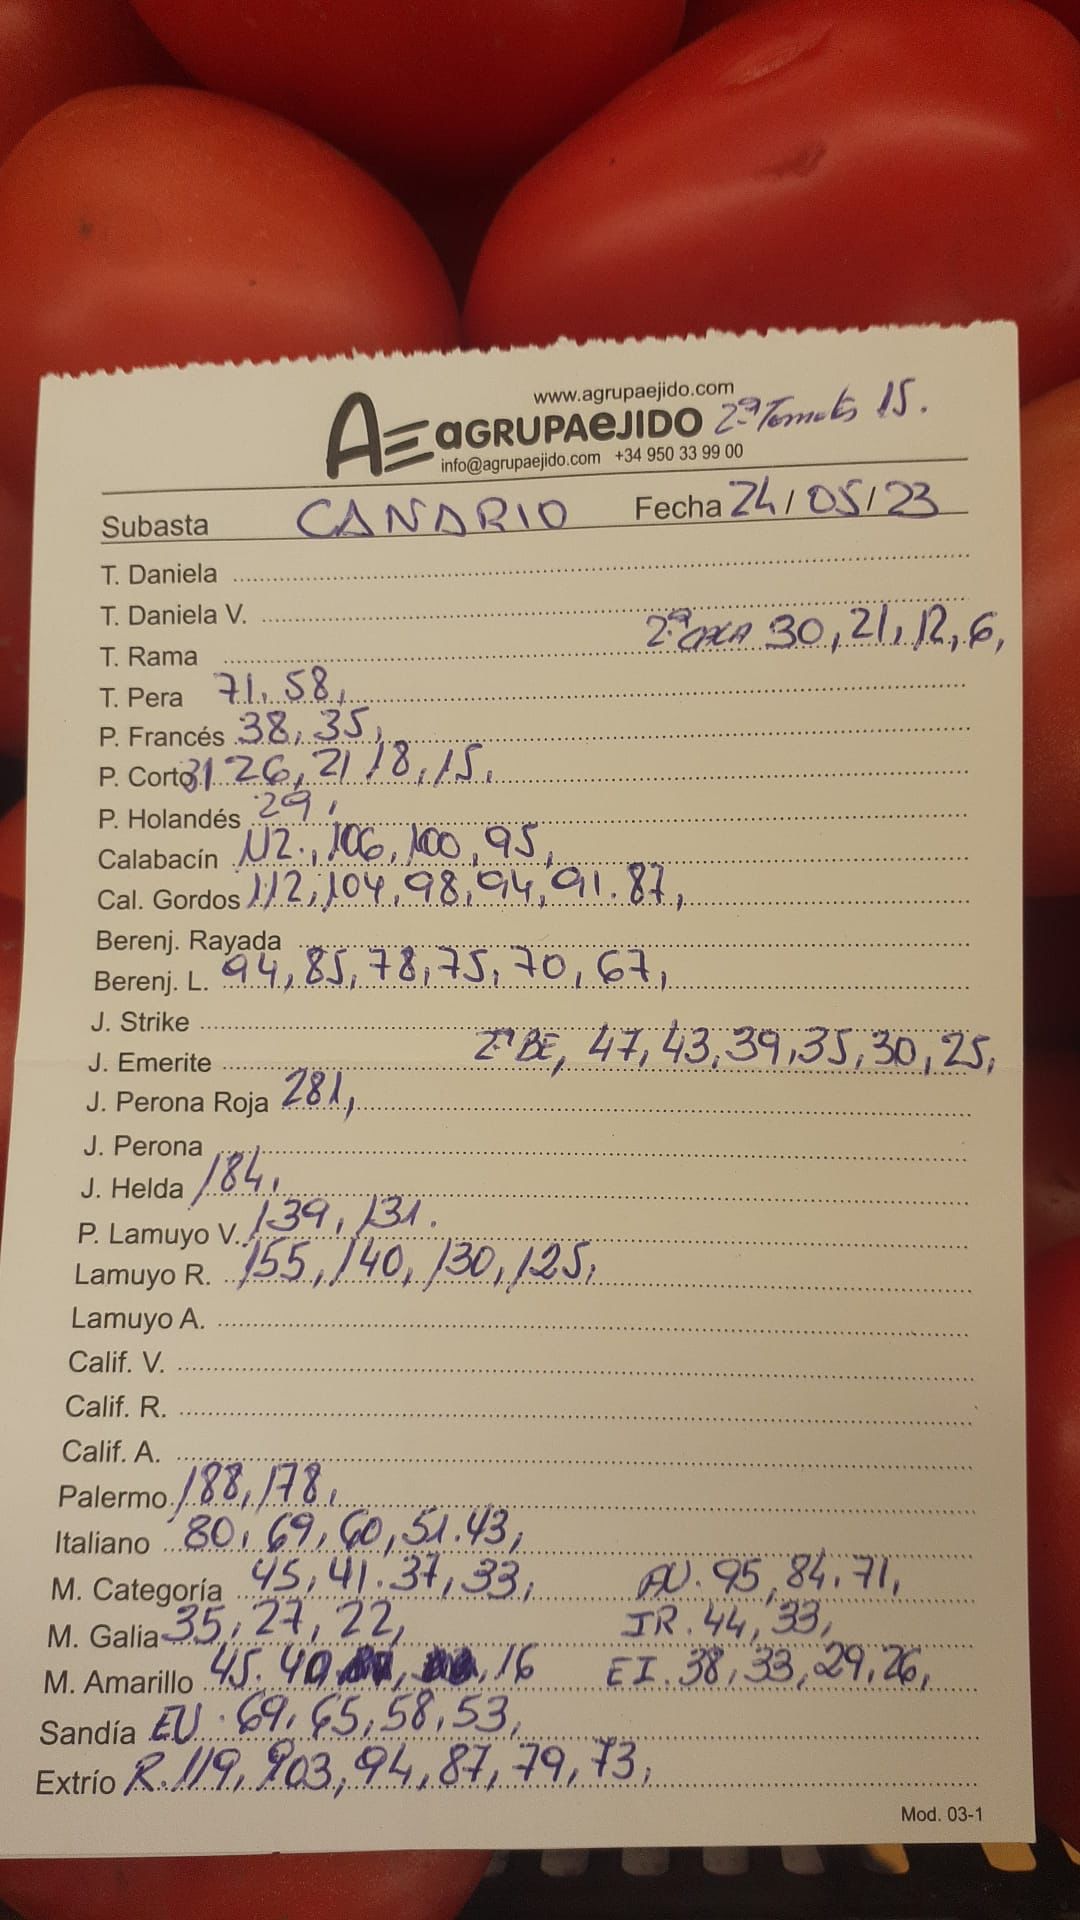 www.agrupaejido.com
AE aGRUPAeJIDO 2ª Tomate 15.
info@agrupaejido.com +34 950 33 99 00
Subasta CANARIO Fecha 24/05/23
T. Daniela
T. Daniela V.
T. Rama 2ª CAXA 30, 21, 12, 6,
T. Pera 71, 58,
P. Francés 38, 35,
P. Corto 31 26, 21 18, 15,
P. Holandés 29,
Calabacín 112., 106, 100, 95,
Cal. Gordos 112, 104, 98, 94, 91. 87,
Berenj. Rayada
Berenj. L. 94, 85, 78, 75, 70, 67,
J. Strike
J. Emerite 2ª BE, 47, 43, 39, 35, 30, 25,
J. Perona Roja 281,
J. Perona
J. Helda 184,
P. Lamuyo V. 139, 131.
Lamuyo R. 155, 140, 130, 125,
Lamuyo A.
Calif. V.
Calif. R.
Calif. A.
Palermo 188, 178,
Italiano 80, 69, 60, 51. 43,
M. Categoría 45, 41. 37, 33, AU. 95, 84, 71,
M. Galia 35, 27, 22, IR. 44, 33,
M. Amarillo 45. 40, 16 EI. 38, 33, 29, 26,
Sandía EU. 69, 65, 58, 53,
Extrío R. 119, 103, 94, 87, 79, 73,
Mod. 03-1